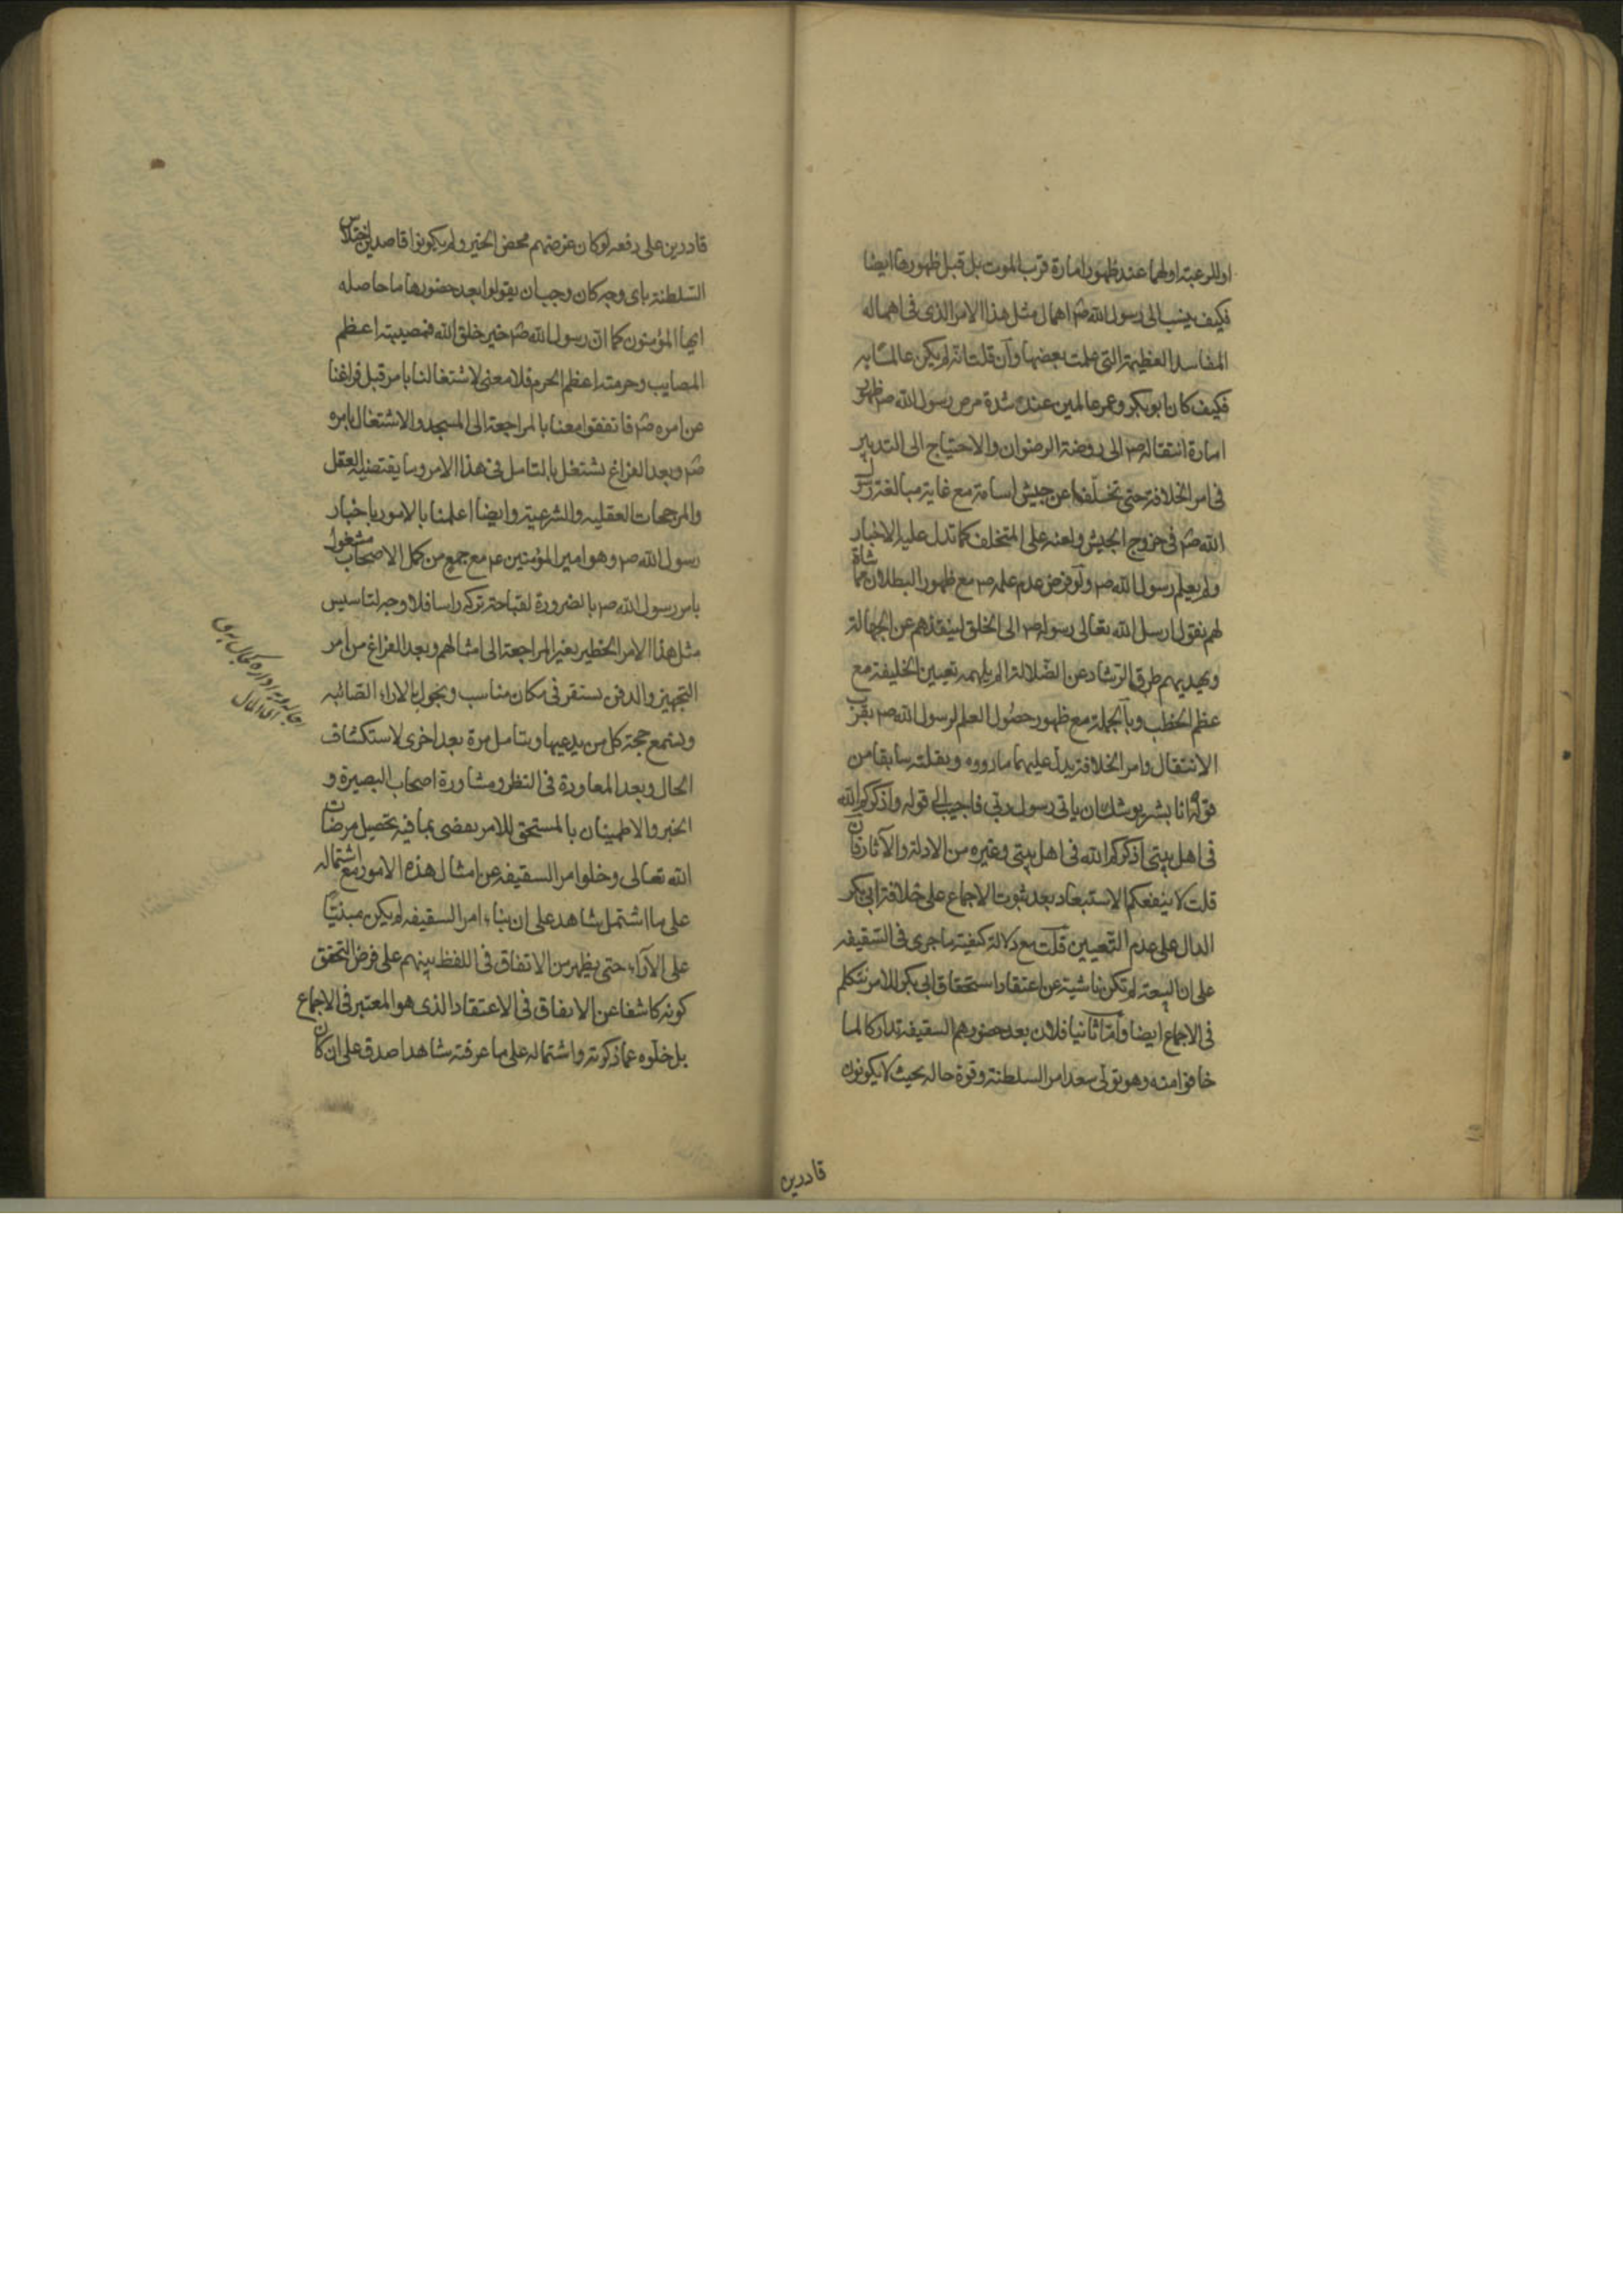 او للرعية او لهما عند ظهور امارة قرب الموت بل قبل ظهورها ايضا
فكيف ينسب الى رسول الله ص اهمال مثل هذا الامر الذى فى اهماله
المفاسد العظيمة التى علمت بعضها وان قلت انه لم يكن عالما به
فكيف كان ابو بكر وعمر عالمين عند شدة مرض رسول الله ص ظهور
امارة انتقاله ص الى روضة الرضوان والاحتياج الى التدبير
فى امر الخلافة حتى تخلفا عن جيش اسامة مع غاية مبالغة رسول
الله ص فى خروج الجيش ولعنه على المتخلف كما تدل عليه الاخبار
ولم يعلم رسول الله ص ولو فرض عدم علمه ص مع ظهور البطلان مماشاة
لهم نقول ارسل الله تعالى رسوله ص الى الخلق لينقذهم عن الجهالة
ويهديهم طرق الرشاد عن الضلالة الم يلهمه تعيين الخليفة مع
عظم الخطب وبالجملة مع ظهور حصول العلم لرسول الله ص بقرب
الانتقال وامر الخلافة يدل عليهما ما رووه ونقلته سابقا من
قوله انا بشر يوشك ان ياتى رسول ربى فاجيب الى قوله واذكركم الله
فى اهل بيتى اذكركم الله فى اهل بيتى وغيره من الادلة والآثار فان
قلت لا ينفعكم الاستبعاد بعد ثبوت الاجماع على خلافة ابى بكر
الدال على عدم التعيين قلت مع دلالة كيفية ما جرى فى السقيفه
على ان البيعة لم تكن ناشية عن اعتقاد استحقاق ابى بكر للامر نتكلم
فى الاجماع ايضا واما ثانيا فلان بعد حضورهم السقيفة تداركا لما
خافوا منه وهو تولى سعد امر السلطنة وقوة حاله بحيث لا يكونون
قادرين
قادرين على رفعه لو كان غرضهم محض الخير ولم يكونوا قاصدين اختلاس
السلطنة باى وجه كان وجب ان يقولوا بعد حضورها ما حاصله
ايها المؤمنون كما ان رسول الله ص خير خلق الله فمصيبته اعظم
المصايب وحرمته اعظم الحرم فلا معنى لاشتغالنا بامر قبل فراغنا
عن امره ص فاتفقوا معنا بالمراجعة الى المسجد والاشتغال بامره
ص وبعد الفراغ نشتغل بالتامل فى هذا الامر وما يقتضيه العقل
والمرجحات العقليه والشرعية وايضا اعلمنا بالامور باخبار
رسول الله ص وهو امير المؤمنين ع مع جمع من كمل الاصحاب مشغول
بامر رسول الله ص بالضرورة لقباحة تركه راسا فلا وجه لتاسيس
مثل هذا الامر الخطير بغير المراجعة الى امثالهم وبعد الفراغ من امر
التجهيز والدفن نستقر فى مكان مناسب ونجول بالاراء الصائبه
ونسمع حجة كل من يدعيها ونتامل مرة بعد اخرى لاستكشاف
الحال وبعد المعاودة فى النظر ومشاورة اصحاب البصيرة و
الخبر والاطمينان بالمستحق للامر نفضى بما فيه تحصيل مرضات
الله تعالى وخلوا امر السقيفه عن امثال هذه الامور مع اشتماله
على ما اشتمل شاهد على ان بناء امر السقيفه لم يكن مبنيا
على الآراء حتى يظهر من الاتفاق فى اللفظ بينهم على فرض التحقق
كونه كاشفا عن الاتفاق فى الاعتقاد الذى هو المعتبر فى الاجماع
بل خلوه عما ذكرته واشتماله على ما عرفته شاهدا صدق على ان كان